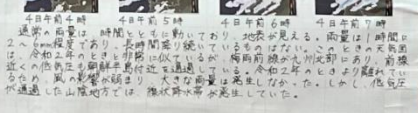 4日午前4時　4日午前5時　4日午前6時　4日午前7時
通常の雨量は、時間とともに動いており、地表が見える。雨量は1時間に
2~6mm程度であり、長時間降り続いているものはない。このときの天気図
は、令和2年のときと非常に似ているが、梅雨前線が九州北部にあり、前線
近くの低気圧も朝鮮半島付近を通過している。令和2年のときより離れてい
るため、風の影響が弱まり、大きな雨量は発生しなかった。しかし、低気圧
が通過した山陰地方では、線状降水帯が発生していた。